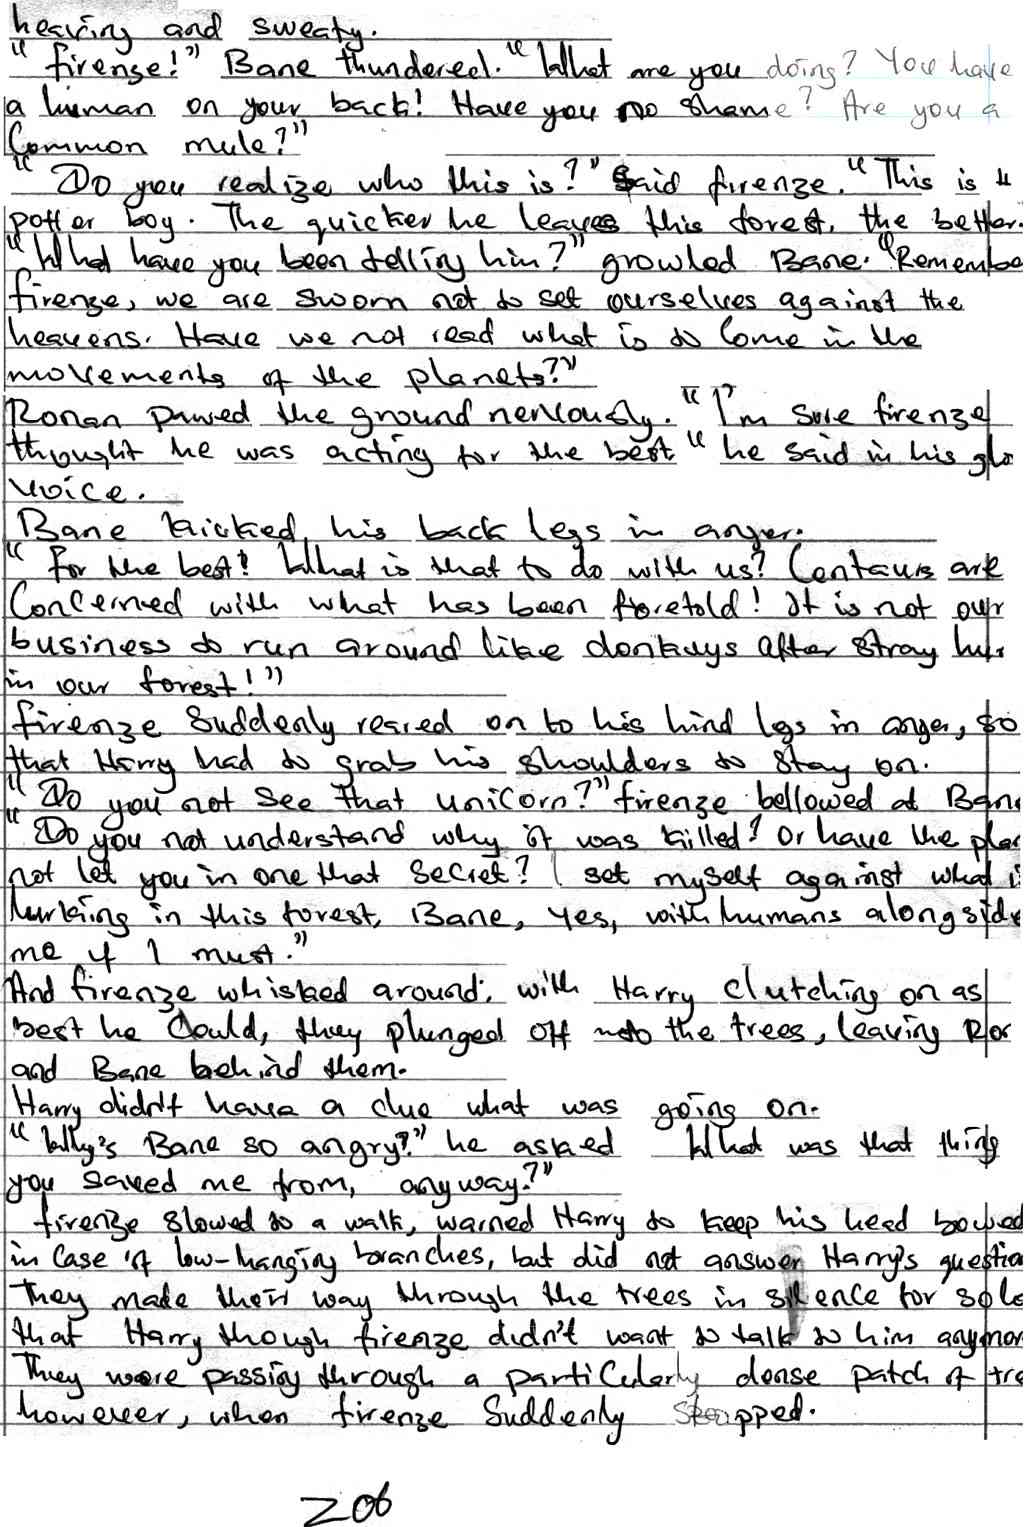 heaving and sweaty.
"firenze!" Bane thundered. "What are you doing? You have
a human on your back! Have you no shame? Are you a
Common mule?"
"Do you realize who this is?" Said firenze. "This is
potter boy. The quicker he leaves this forest, the better.
"What have you been telling him?" growled Bane. "Remembe
firenze, we are sworn not to set ourselves against the
heavens. Have we not read what is to Come in the
movements of the planets?"
Ronan pawed the ground nervously. "I'm sure firenze
thought he was acting for the best" he said in his glo
voice.
Bane kicked his back legs in anger.
"for the best! What is that to do with us? Centaurs are
Concerned with what has been foretold! It is not our
business to run around like donkeys after stray hu
in our forest!"
firenze Suddenly reared on to his hind legs in anger, so
that Harry had to grab his shoulders to stay on.
"Do you not see that unicorn?" firenze bellowed at Bane
"Do you not understand why it was killed? Or have the pla
not let you in one that Secret? I set myself against what i
lurking in this forest, Bane, yes, with humans alongside
me if I must."
And firenze whisked around; with Harry Clutching on as
best he Could, they plunged off into the trees, leaving Ro
and Bane behind them.
Harry didn't have a clue what was going on.
"Why's Bane so angry?" he asked What was that thing
you saved me from, anyway?"
firenze slowed to a walk, warned Harry to keep his head bowed
in Case of low-hanging branches, but did not answer Harry's question
They made their way through the trees in silence for so lo
that Harry though firenze didn't want to talk to him anymor
They were passing through a particularly dense patch of tre
however, when firenze Suddenly stopped.
206